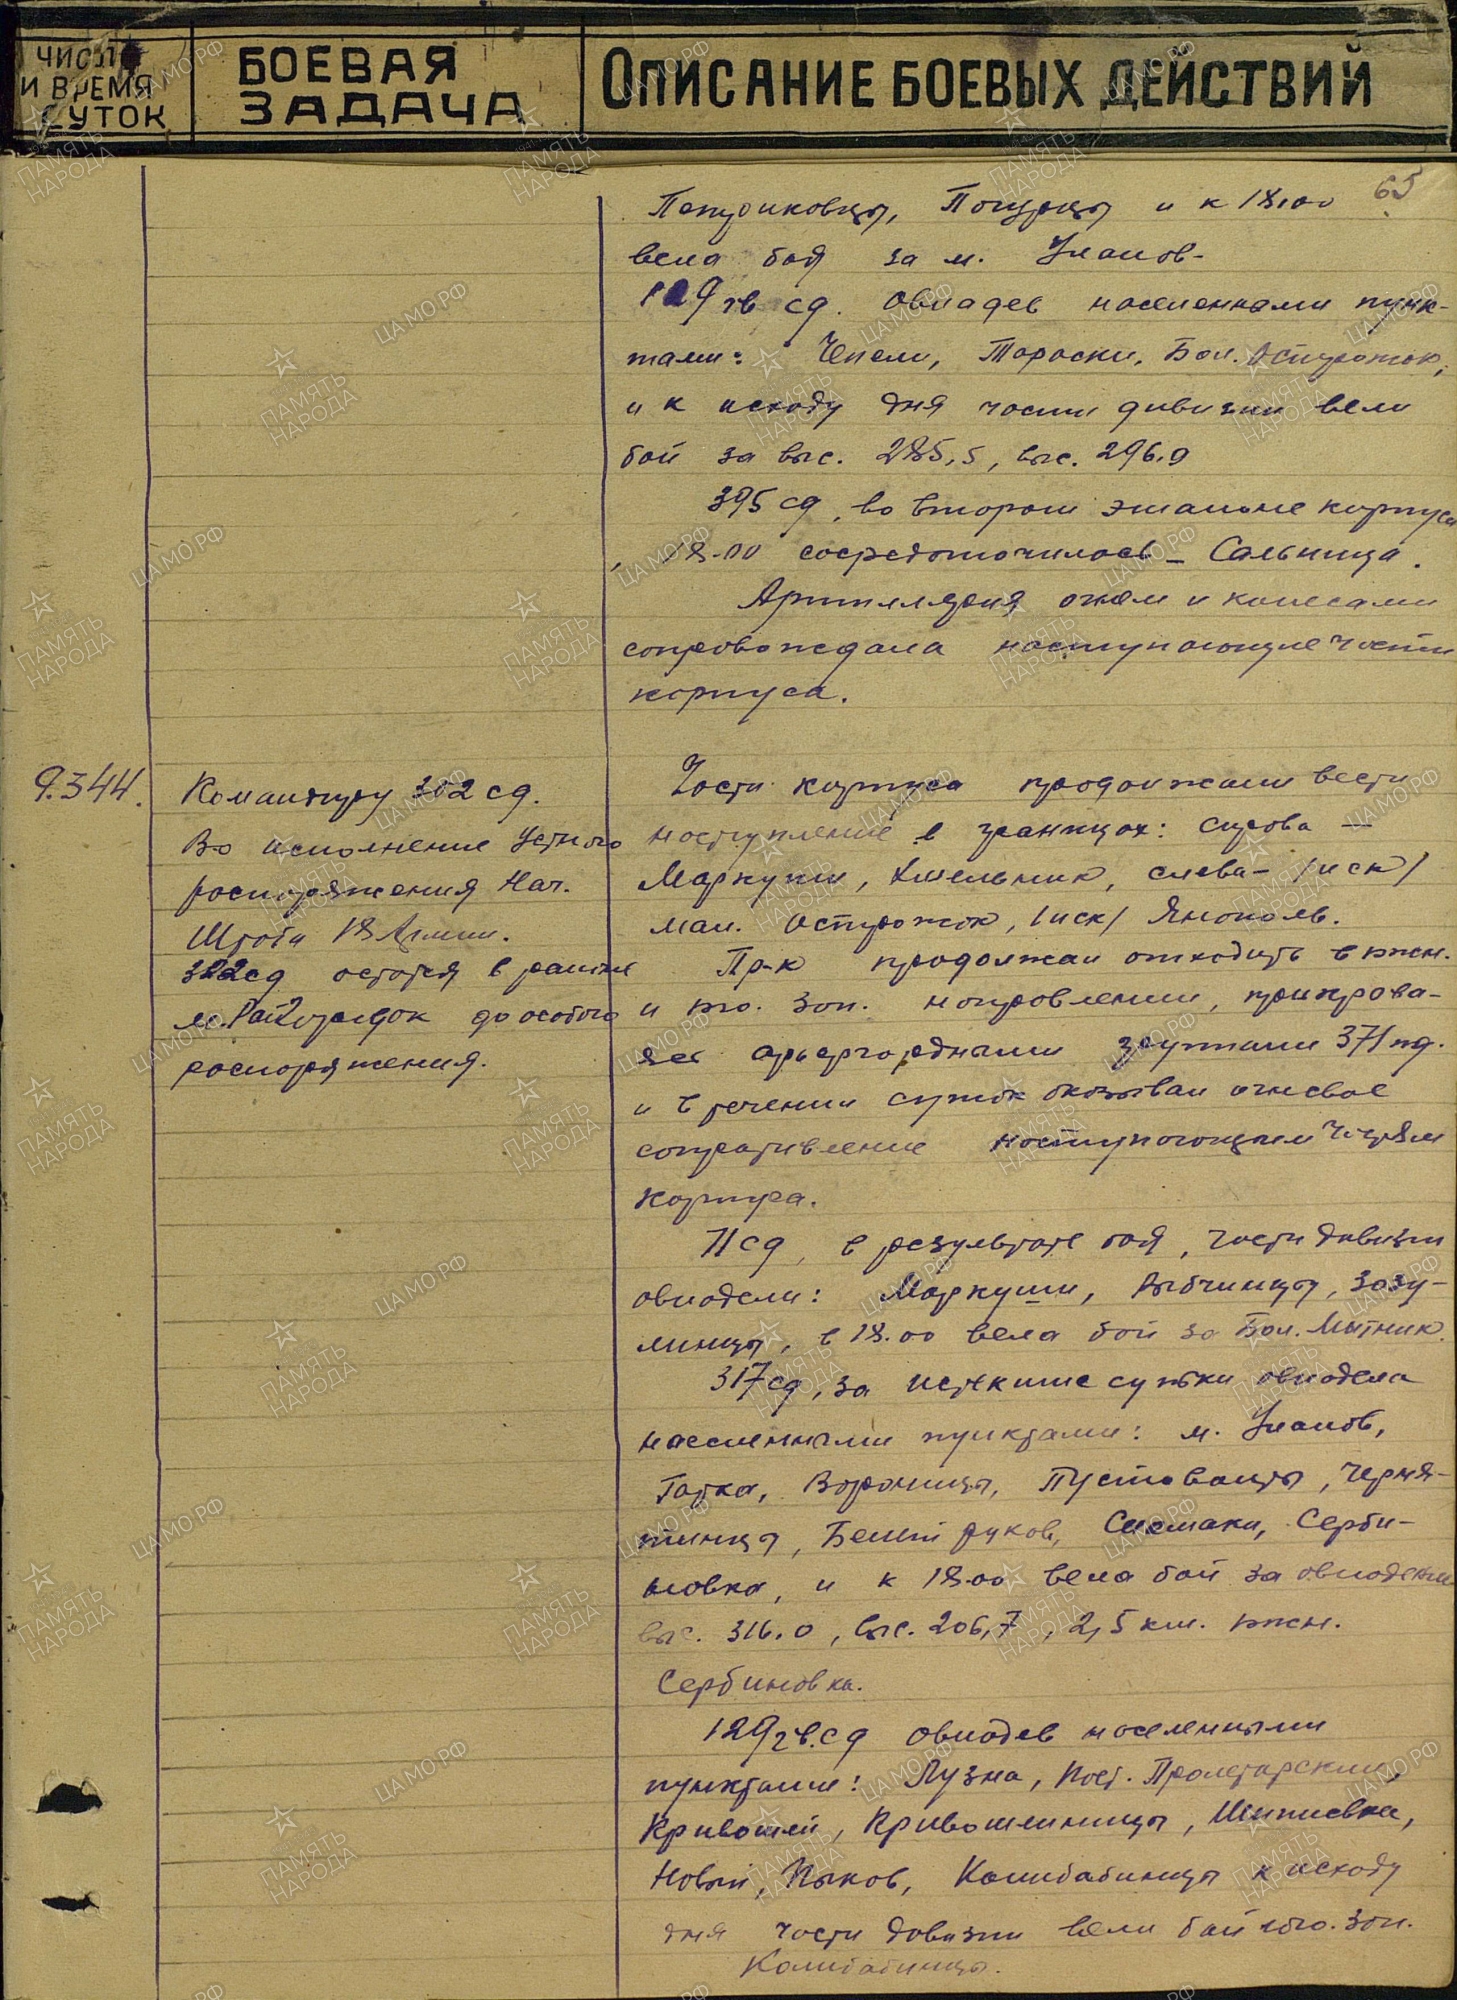 ЧИСЛО
И ВРЕМЯ
СУТОК
БОЕВАЯ
ЗАДАЧА
ОПИСАНИЕ БОЕВЫХ ДЕЙСТВИЙ
65
Петриковцы, Пощурцы и к 18.00
вела бой за м. Уланов-
129 гв сд. Овладев населенными пунк-
тами: Чепели, Тараски, Бол. Острожок,
и к исходу дня части дивизии вели
бой за выс. 285,5, выс. 296,0
395 сд, во втором эшалоне корпуса
18-00 сосредоточилась - Сальница.
Артиллерия огнем и колесами
сопровождала наступающие части
корпуса.
9.3.44.
Командиру 302 сд.
Во исполнение устного
распоряжения Нач.
Штаба 18 Армии.
322 сд остатся в районе
м. Райгородок до особого
распоряжения.
Части корпуса продолжали вести
наступление в границах: справа —
Маркуши, Хмельник, слева- /иск/
мал. Острожок, /иск/ Янополь.
Пр-к продолжал отходить в южн.
и юго. зап. направлении, прикрова-
ясь арьергардными групами 371 пд.
и в течении суток оказывал огневое
сопративление наступающим частям
корпуса.
71 сд, в результате боя, части дивизии
овладели: Маркуши, Рыбчинцы, Зозу-
линцы, в 18.00 вела бой за Бол. Митник.
317 сд, за истекшие сутки овладела
населенными пунктами: м. Уланов,
Гатка, Воронцы, Пустованты, Черня-
тинцы, Белый рукав, Сиомаки, Серби-
новка, и к 18-00 вела бой за овладение
выс. 316.0, выс. 206,7, 2,5 км. южн.
Сербиновка.
129 гв.сд овладев населенными
пунктами: Лузна, Пост. Пролетарский,
Кривошеи, Кривошеинцы, Шиписвка,
Новый, Пыков, Колибабинцы к исходу
дня части дивизии вели бой юго. зап.
Колибабинцы.